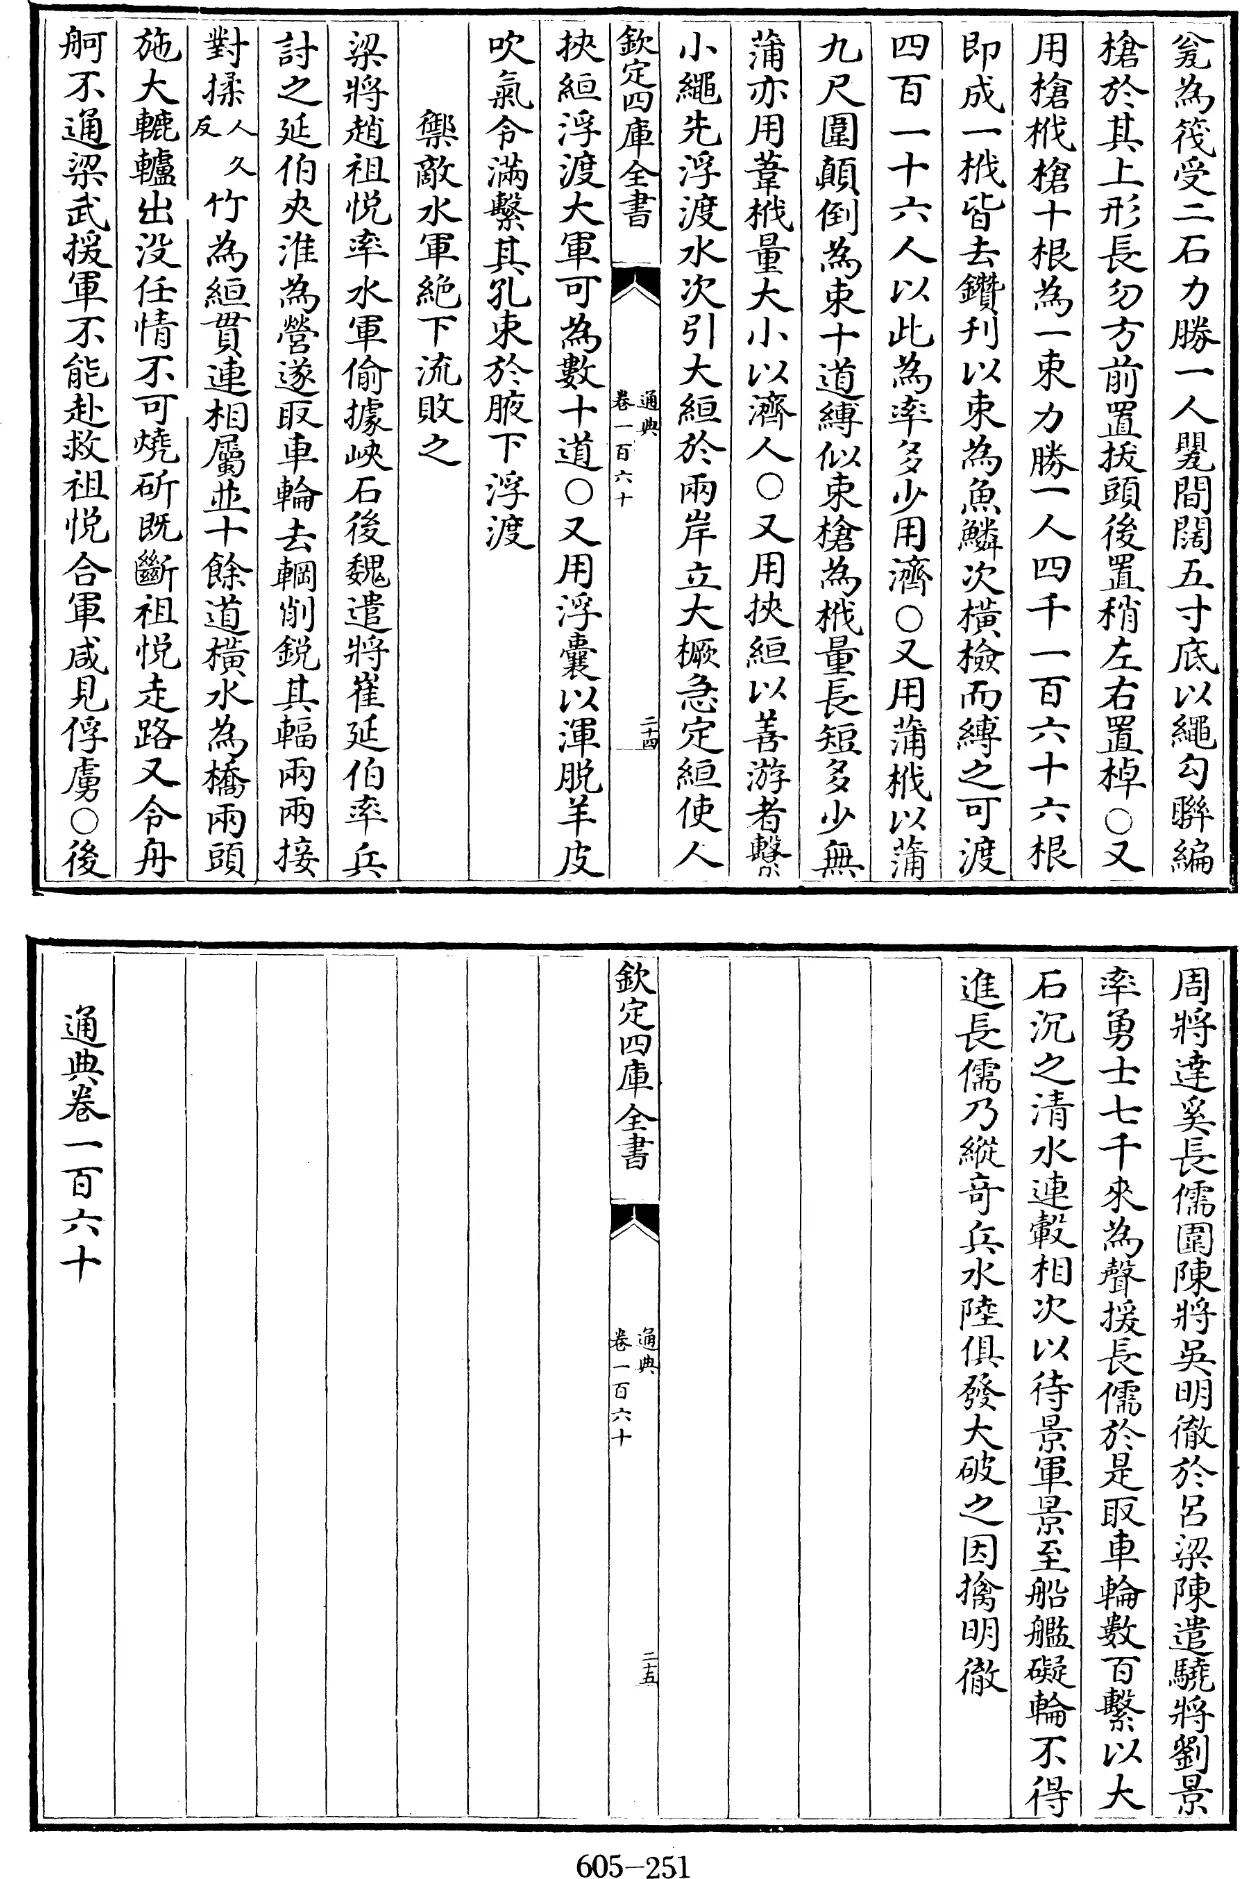 瓮為筏受二石力勝一人甖間闊五寸底以繩勾聯編
槍於其上形長勿方前置拔頭後置稍左右置棹○又
用槍栰槍十根為一束力勝一人四千一百六十六根
即成一栰皆去鑽刋以束為魚鱗次横檢而縛之可渡
四百一十六人以此為率多少用濟○又用蒲栰以蒲
九尺圍顛倒為束十道縛似束槍為栰量長短多少無
蒲亦用葦栰量大小以濟人○又用挾絙以善游者繫
小繩先浮渡水次引大絙於兩岸立大橛急定絙使人
欽定四庫全書
通典
卷一百六十
二十四
挾絙浮渡大軍可為數十道○又用浮囊以渾脱羊皮
吹氣令滿繫其孔束於腋下浮渡
禦敵水軍絶下流敗之
梁將趙祖悦率水軍偷據峽石後魏遣將崔延伯率兵
討之延伯夾淮為營遂取車輪去輞削銳其輻兩兩接
對揉人久反竹為絙貫連相屬並十餘道橫水為橋兩頭
施大轆轤出沒任情不可燒斫既斷祖悦走路又令舟
舸不通梁武援軍不能赴救祖悦合軍咸見俘虜○後
周將達奚長儒圍陳將吳明徹於呂梁陳遣驍將劉景
率勇士七千來為聲援長儒於是取車輪數百繫以大
石沉之清水連轂相次以待景軍景至船艦礙輪不得
進長儒乃縱奇兵水陸俱發大破之因擒明徹
欽定四庫全書
通典
卷一百六十
二十五
通典卷一百六十
605-251